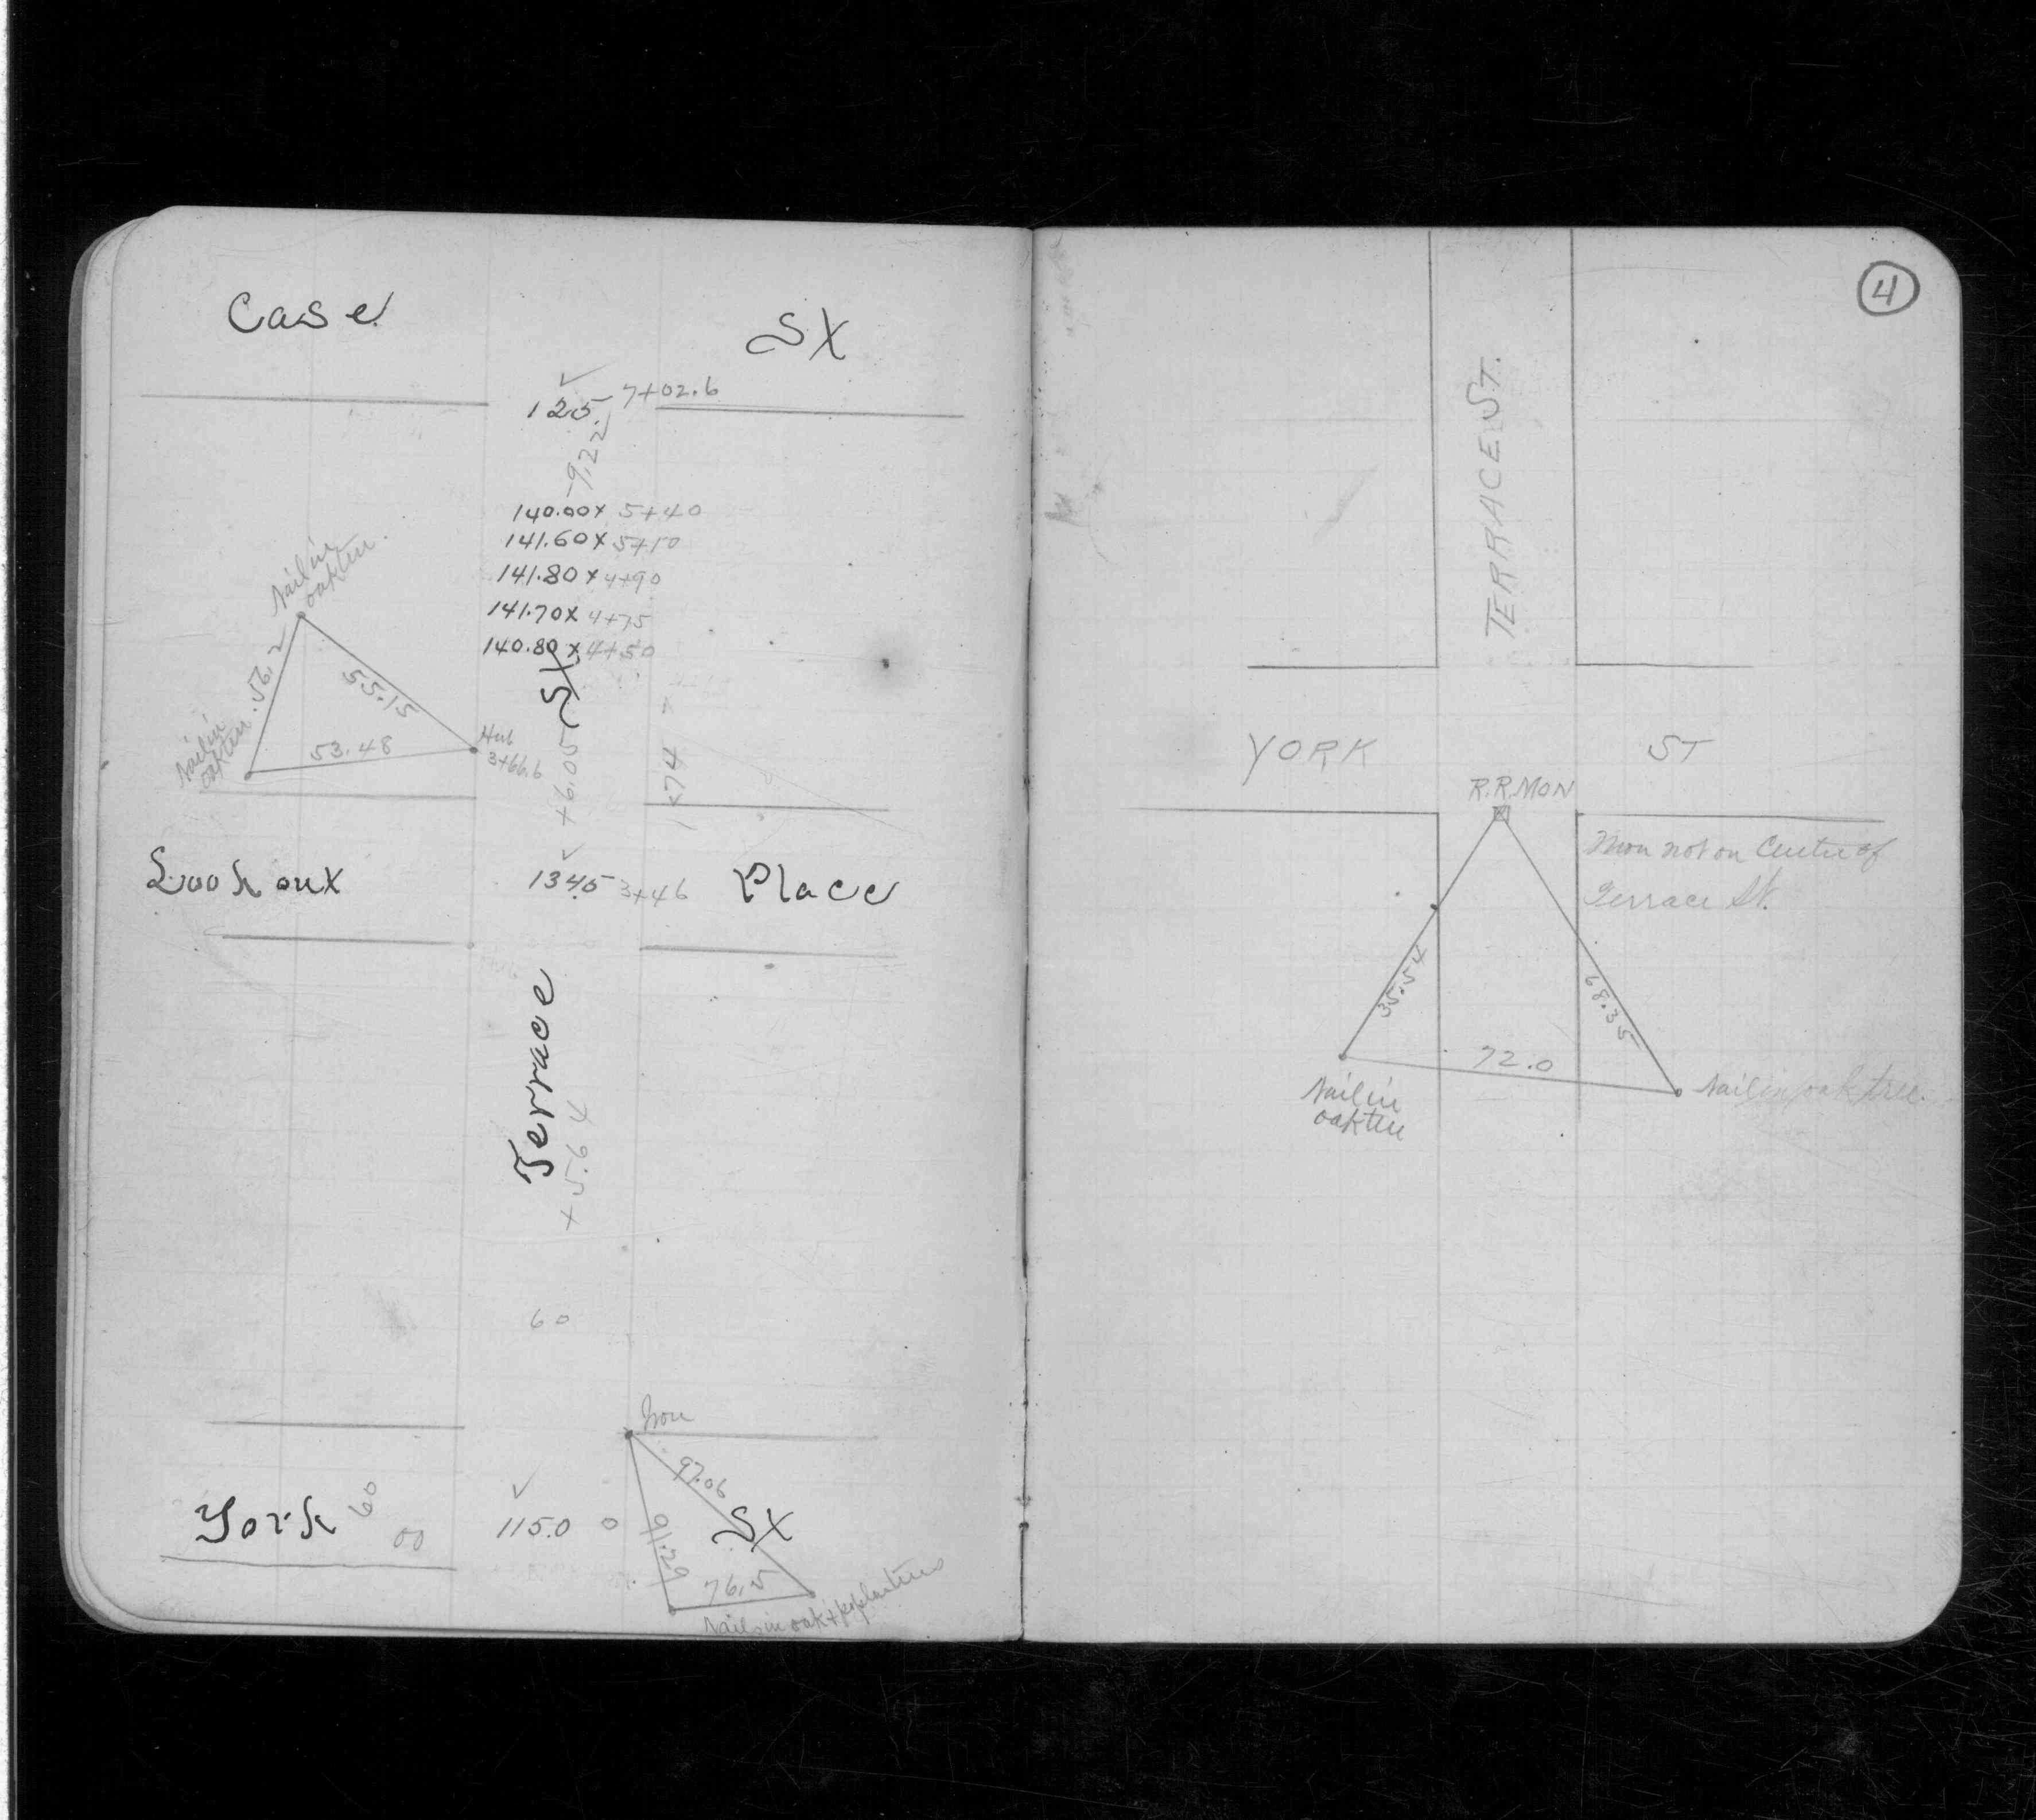 Case St
125. 7+02.6
-9.22
140.00x 5+40
141.60x 5+10
141.80x 4+90
141.70x 4+75
140.80x 4+50
Nail in
oak tree.
56.2
55.15
53.48
Nail in
oak tree.
Hub
3+66.6
Terrace St
+6.05
174
Lookout 134.5 3+46 Place
+5.64
60
Iron
97.06
91.29
76.2
York 60 00 115.0 0 St
Nails in oak & poplar trees
4
TERRACE ST.
YORK ST
R.R. MON
Mon not on Centre of
Terrace St.
35.54
68.35
72.0
Nail in
oak tree
Nail in oak tree.